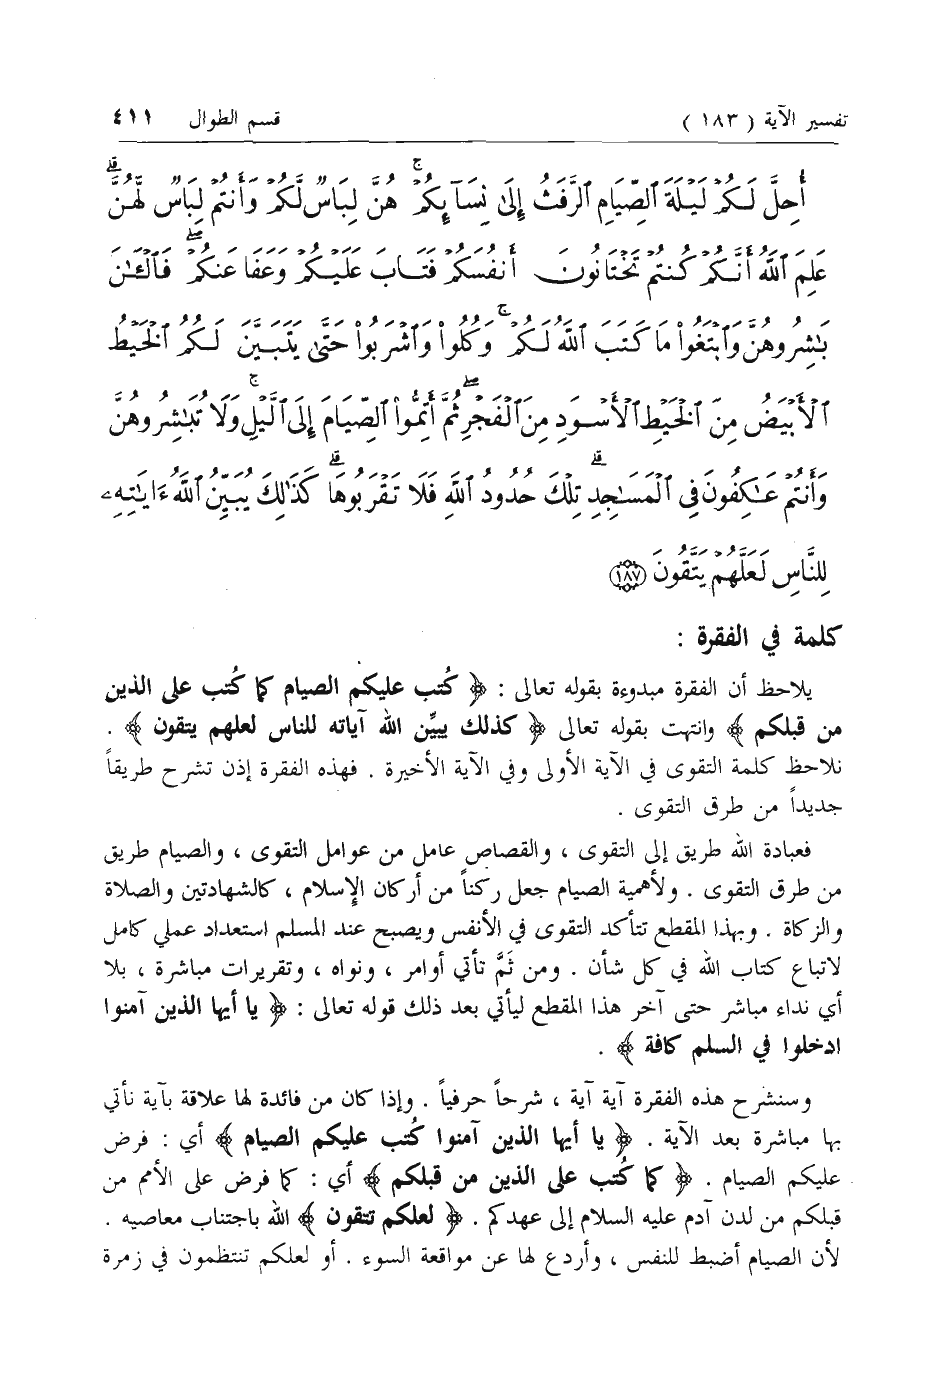 تفسير الآية ( ١٨٣ ) قسم الطوال ٤١١
أُحِلَّ لَكُمْ لَيْلَةَ ٱلصِّيَامِ ٱلرَّفَثُ إِلَىٰ نِسَآئِكُمْ ۚ هُنَّ لِبَاسٌ لَّكُمْ وَأَنتُمْ لِبَاسٌ لَّهُنَّ ۗ
عَلِمَ ٱللَّهُ أَنَّكُمْ كُنتُمْ تَخْتَانُونَ أَنفُسَكُمْ فَتَابَ عَلَيْكُمْ وَعَفَا عَنكُمْ ۖ فَٱلْـَٰٔنَ
بَـٰشِرُوهُنَّ وَٱبْتَغُوا۟ مَا كَتَبَ ٱللَّهُ لَكُمْ ۚ وَكُلُوا۟ وَٱشْرَبُوا۟ حَتَّىٰ يَتَبَيَّنَ لَكُمُ ٱلْخَيْطُ
ٱلْأَبْيَضُ مِنَ ٱلْخَيْطِ ٱلْأَسْوَدِ مِنَ ٱلْفَجْرِ ۖ ثُمَّ أَتِمُّوا۟ ٱلصِّيَامَ إِلَى ٱلَّيْلِ ۚ وَلَا تُبَـٰشِرُوهُنَّ
وَأَنتُمْ عَـٰكِفُونَ فِى ٱلْمَسَـٰجِدِ ۗ تِلْكَ حُدُودُ ٱللَّهِ فَلَا تَقْرَبُوهَا ۗ كَذَٰلِكَ يُبَيِّنُ ٱللَّهُ ءَايَـٰتِهِۦ
لِلنَّاسِ لَعَلَّهُمْ يَتَّقُونَ ﴿١٨٧﴾
كلمة في الفقرة :
يلاحظ أن الفقرة مبدوءة بقوله تعالى : ﴿ كُتب عليكم الصيام كما كُتب على الذين
من قبلكم ﴾ وانتهت بقوله تعالى ﴿ كذلك يبيِّن الله آياته للناس لعلهم يتقون ﴾ .
نلاحظ كلمة التقوى في الآية الأولى وفي الآية الأخيرة . فهذه الفقرة إذن تشرح طريقاً
جديداً من طرق التقوى .
فعبادة الله طريق إلى التقوى ، والقصاص عامل من عوامل التقوى ، والصيام طريق
من طرق التقوى . ولأهمية الصيام جعل ركناً من أركان الإسلام ، كالشهادتين والصلاة
والزكاة . وبهذا المقطع تتأكد التقوى في الأنفس ويصبح عند المسلم استعداد عملي كامل
لاتباع كتاب الله في كل شأن . ومن ثَمَّ تأتي أوامر ، ونواه ، وتقريرات مباشرة ، بلا
أي نداء مباشر حتى آخر هذا المقطع ليأتي بعد ذلك قوله تعالى : ﴿ يا أيها الذين آمنوا
ادخلوا في السلم كافة ﴾ .
وسنشرح هذه الفقرة آية آية ، شرحاً حرفياً . وإذا كان من فائدة لها علاقة بآية نأتي
بها مباشرة بعد الآية . ﴿ يا أيها الذين آمنوا كُتب عليكم الصيام ﴾ أي : فرض
عليكم الصيام . ﴿ كما كُتب على الذين من قبلكم ﴾ أي : كما فرض على الأمم من
قبلكم من لدن آدم عليه السلام إلى عهدكم . ﴿ لعلكم تتقون ﴾ الله باجتناب معاصيه .
لأن الصيام أضبط للنفس ، وأردع لها عن مواقعة السوء . أو لعلكم تنتظمون في زمرة